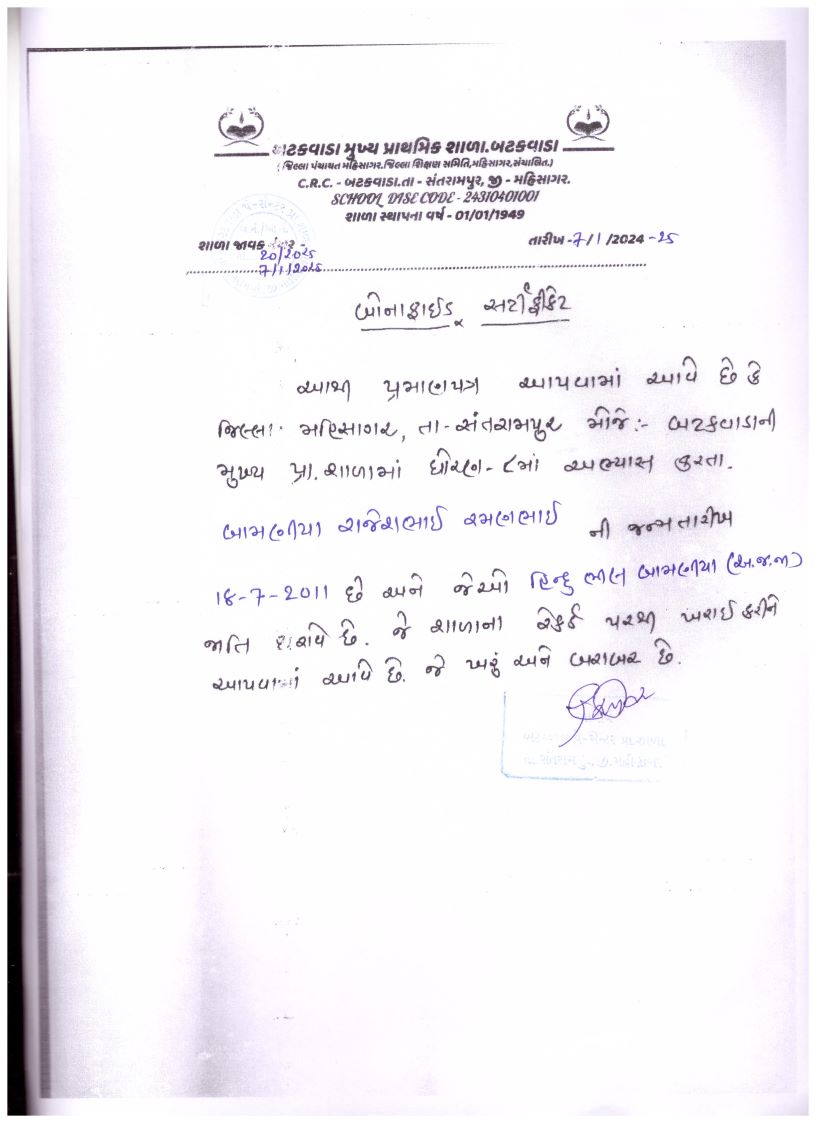 બટકવાડા મુખ્ય પ્રાથમિક શાળા.બટકવાડા
(જિલ્લા પંચાયત મહિસાગર.જિલ્લા શિક્ષણ સમિતિ,મહિસાગર,સંચાલિત.)
C.R.C. - બટકવાડા.તા - સંતરામપુર, જી - મહિસાગર.
SCHOOL DISE CODE - 24310401001
શાળા સ્થાપના વર્ષ - 01/01/1949
શાળા જાવક નંબર - તારીખ -7/1/2024-25
20/2025
7/1/2025
બોનાફાઈડ સર્ટીફીકેટ
આથી પ્રમાણપત્ર આપવામાં આવે છે કે
જિલ્લા- મહિસાગર, તા-સંતરામપુર મોજે:- બટકવાડાની
મુખ્ય પ્રા. શાળામાં ધોરણ-૮માં અભ્યાસ કરતા.
બામણીયા રાજેશભાઈ રમણભાઈ ની જન્મતારીખ
18-7-2011 છે અને જેઓ હિન્દુ ભીલ બામણીયા (અ.જ.જા)
જાતિ ધરાવે છે. જે શાળાના રેકર્ડ પરથી ખરાઈ કરીને
આપવામાં આવે છે. જે ખરું અને બરાબર છે.